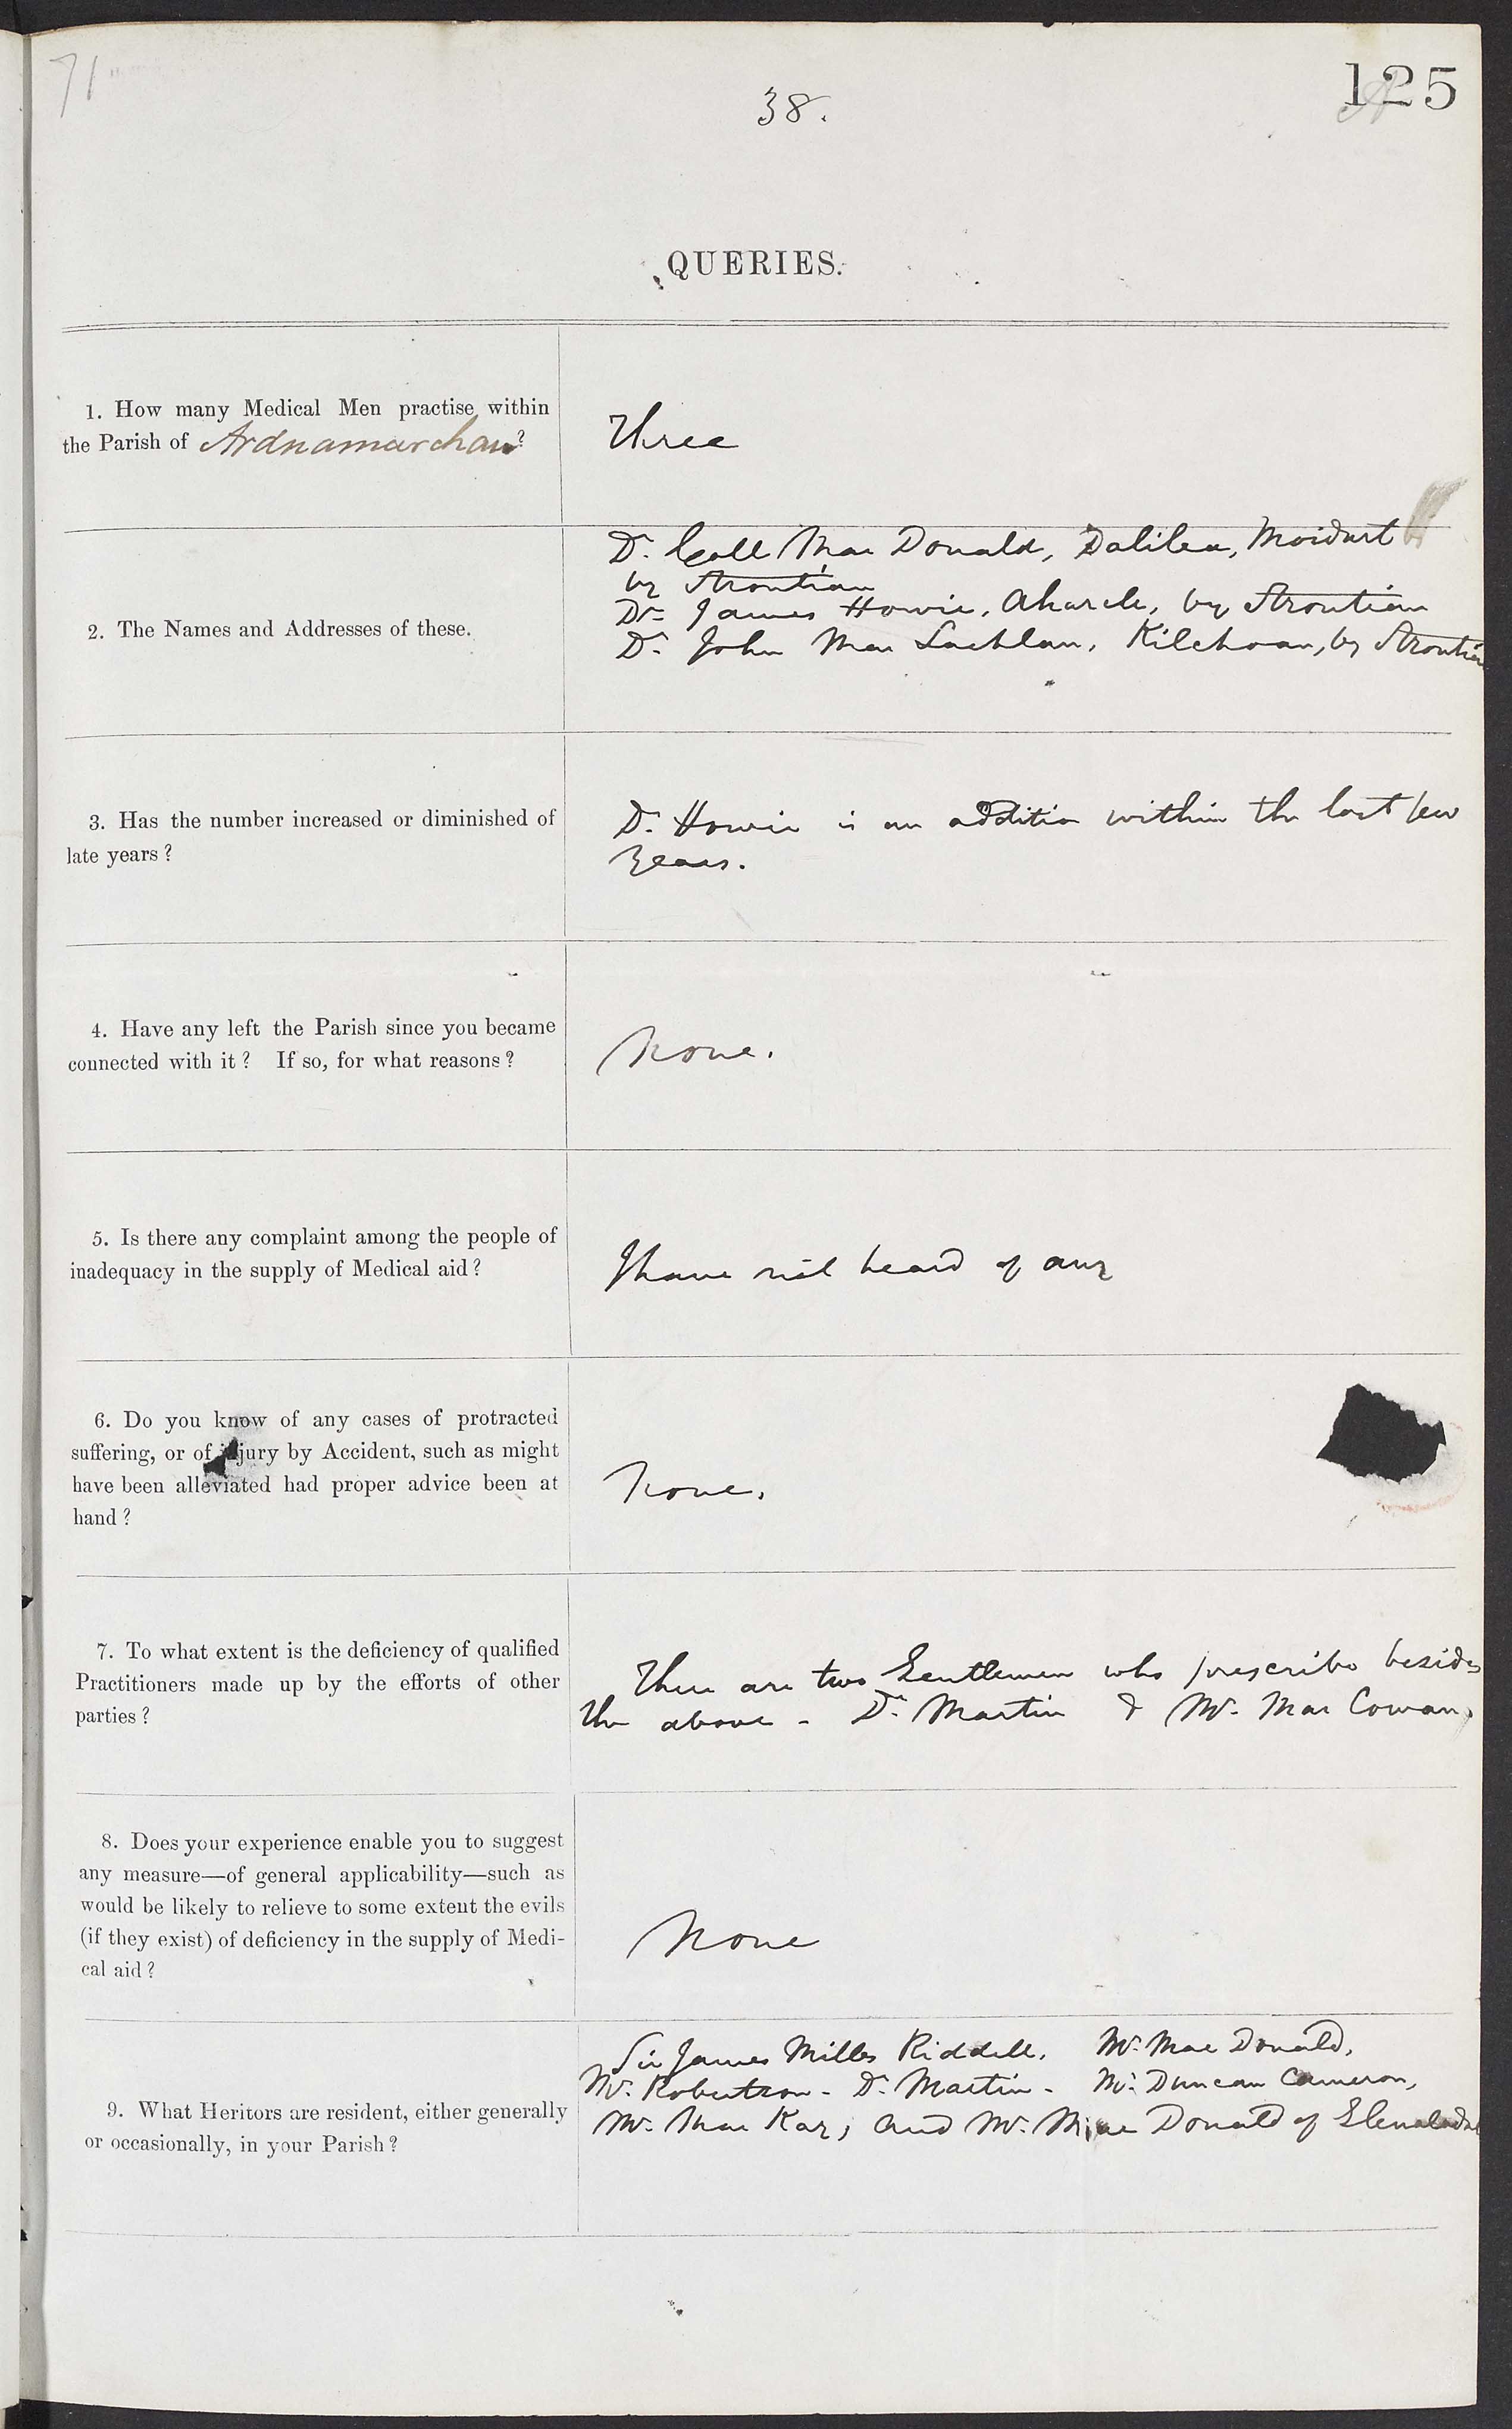 71
38.
125
QUERIES.
1. How many Medical Men practise within
the Parish of Ardnamurchan?
Three
2. The Names and Addresses of these.
Dr. Coll Mac Donald, Dalilea, Moidart
by Strontian
Dr. James Howie, Aharcle, by Strontian
Dr. John Mac Lachlan, Kilchoan, by Strontian
3. Has the number increased or diminished of
late years?
Dr. Howie is an addition within the last few
years.
4. Have any left the Parish since you became
connected with it? If so, for what reasons?
None.
5. Is there any complaint among the people of
inadequacy in the supply of Medical aid?
I have not heard of any
6. Do you know of any cases of protracted
suffering, or of injury by Accident, such as might
have been alleviated had proper advice been at
hand?
None.
7. To what extent is the deficiency of qualified
Practitioners made up by the efforts of other
parties?
There are two Gentlemen who prescribe besides
the above - Dr. Martin & Mr. Mac Cowan,
8. Does your experience enable you to suggest
any measure—of general applicability—such as
would be likely to relieve to some extent the evils
(if they exist) of deficiency in the supply of Medi-
cal aid?
None
9. What Heritors are resident, either generally
or occasionally, in your Parish?
Sir James Milles Riddell. Mr. Mac Donald,
Mr. Robertson - Dr. Martin - Mr. Duncan Cameron,
Mr. Mac Kay, and Mr. Mac Donald of Glenaladale